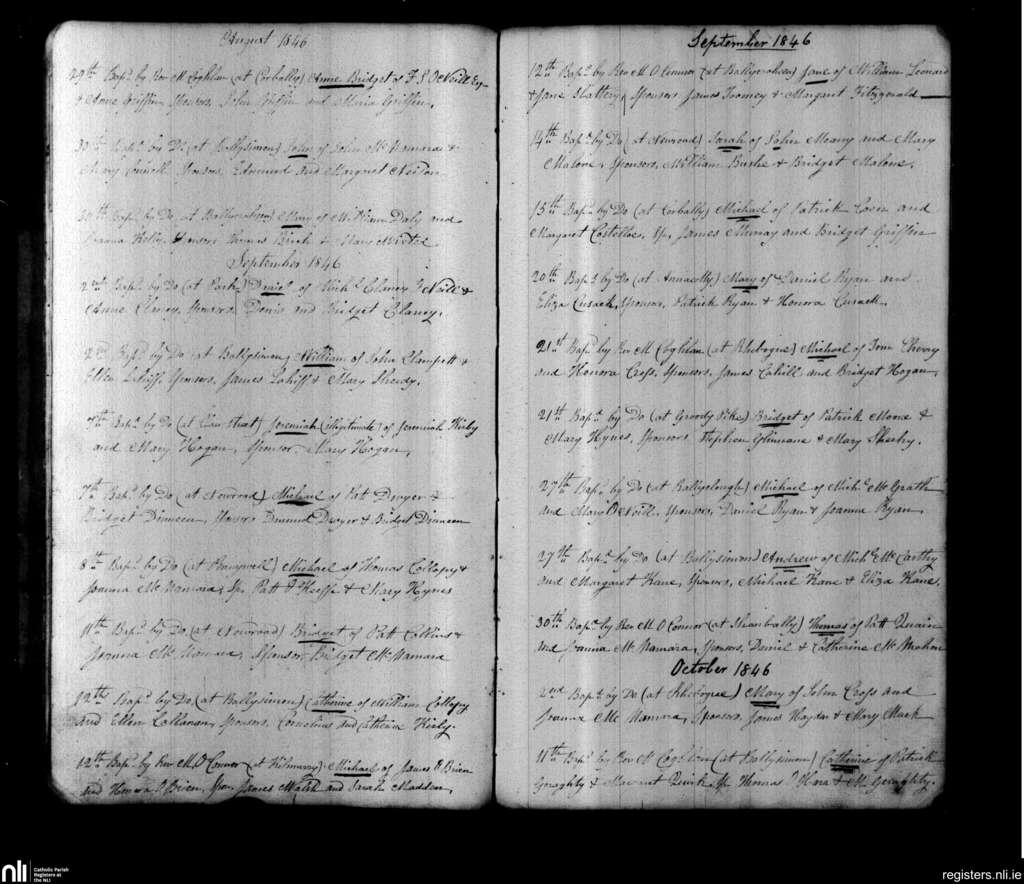 August 1846
29th Bapd by Rev M Coghlan (at Corbally) Anne Bridget of F. S. O'Neill Esq
& Anne Griffin, Sponsors, John Griffin and Maria Griffin.
30th Bapd by Do (at Ballysimon) John of John McNamara &
Mary Sponsors, Edmund and Margaret
30th Bapd by Do (at Mary of William Daly and
Joanna Kelly, Sponsors Thomas & Mary
September 1846
2nd Bapd by Do (at Park) of Michl Clancy &
Anne Clancy, Sponsors, Denis and Bridget Clancy.
2nd Bapd by Do (at Ballysimon) William of John Clampett &
Ellen Lahiff, Sponsors, James Lahiff & Mary Sheedy.
7th Bapd by Do (at street) Jeremiah (illegitimate) of Jeremiah Kirby
and Mary Hogan, Sponsor, Mary Hogan,
7th Bapd by Do (at Newroad) Michael of Pat Dwyer &
Bridget Dinneen, Sponsors Edmund Dwyer & Bridget Dinneen
8th Bapd by Do (at Michael of Thomas Collopy &
Joanna McNamara, Sps, Patt O'Keeffe & Mary Hynes
11th Bapd by Do (at Newroad) Bridget of Patt Collins &
Joanna McNamara, Sponsor, Bridget McNamara
12th Bapd by Do (at Ballysimon) Catherine of William Collopy
and Ellen Sponsors, Cornelius and Catherine Kirby.
12th Bapd by Rev M O'Connor (at Kilmurry) Michael of James O'Brien
and Honora O'Brien, Spon, James Walsh and Sarah Madden,
September 1846
12th Bapd by Rev M O'Connor (at Jane of William Leonard
& Jane Slattery, Sponsors James Toomey & Margaret Fitzgerald
14th Bapd by Do (at Newroad) Sarah of John Meany and Mary
Malone, Sponsors, William Burke & Bridget Malone,
15th Bapd by Do (at Corbally) Michael of Patrick and
Margaret Costelloe, Sps, James Murray and Bridget Griffin
20th Bapd by Do (at Annacotty) Mary of Daniel Ryan and
Eliza Cusack, Sponsors, Patrick Ryan & Honora Cusack.
21st Bapd by Rev M Coghlan (at Rhebogue) Michael of Tom
and Honora Cross, Sponsors, James Cahill and Bridget Hogan,
21st Bapd by Do (at Groody Pike) Bridget of Patrick Moore &
Mary Hynes, Sponsors Stephen & Mary Sheehy.
27th Bapd by Do (at Ballyclough) Michael of Michl McGrath
and Mary O'Neill, Sponsors, Daniel Ryan & Joanna Ryan,
27th Bapd by Do (at Ballysimon) Andrew of Michl McCarthy
and Margaret Kane, Sponsors, Michael Kane & Eliza Kane.
30th Bapd by Rev M O'Connor (at Shanbally) Thomas of Patt
and Joanna McNamara, Sponsors, Daniel & Catherine McMahon
October 1846
2nd Bapd by Do (at Rhebogue) Mary of John Cross and
Joanna McNamara, Sponsors, James Hayden & Mary Mack
11th Bapd by Rev M Coghlan (at Ballysimon) Catherine of Patrick
Geraghty & Margaret Quirk, Sps, Thomas O'Hara & M. Geraghty.
nli
Catholic Parish
Registers at
the NLI
registers.nli.ie